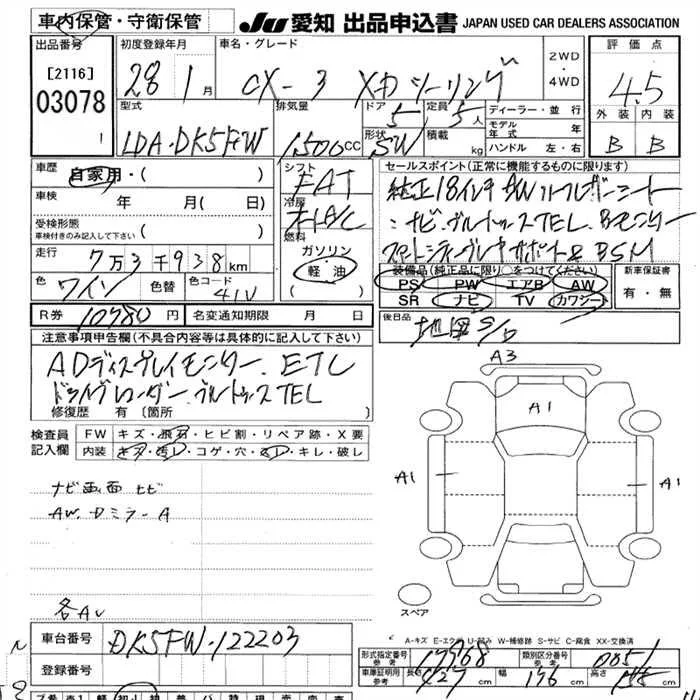 車内保管・守衛保管
JU 愛知 出品申込書 JAPAN USED CAR DEALERS ASSOCIATION
出品番号 初度登録年月 車名・グレード 2WD・4WD 評価点
[2116] 28年 1月 CX-3 XDツーリング 4.5
03078 1
型式 排気量 ドア 5 定員 5人 ディーラー・並行 外装 内装
LDA-DK5FW 1500cc 形状 SW 積載 kg モデル年式 年 B B
ハンドル 左・右
車歴 自家用・( ) シフト FAT セールスポイント(正常に機能するものに限ります)
車検 年 月 ( 日) 冷房 純正18インチAW ハーフレザーシート
受検形態 ナビ.ブルートゥースTEL.Bモニター
車検付きのみ記入して下さい ( ) 燃料 スマートシティブレーキサポート& BSM
走行 7万3千938km ガソリン 装備品(純正品に限り○をつけてください) 新車保証書
色 ワイン 色替 色コード 41V 軽・油 ( ) PS PW エアB AW 有・無
SR ナビ TV カワシート
R券 10980円 名変通知期限 月 日 後日品 地図S/D
注意事項申告欄(不具合内容等は具体的に記入して下さい)
ADディスプレイモニター.ETC
ドライブレコーダー.ブルートゥースTEL
修復歴 有 〔箇所
A3
A1
A1
A1
検査員記入欄 FW キズ・飛石・ヒビ割・リペア跡・X要
内装 キズ・汚レ・コゲ・穴・スレ・キレ・破レ
ナビ画面 ヒビ
AW.DミラーA
各AU
スペア
A-キズ E-エクボ U-凹み W-補修跡 S-サビ C-腐食 XX-交換済
車台番号 DK5FW-122203
登録番号
形式指定番号 参考 17768 類別区分番号 参考 0051
車庫証明用 参考 長さ 427cm 幅 176cm 高さ 155cm